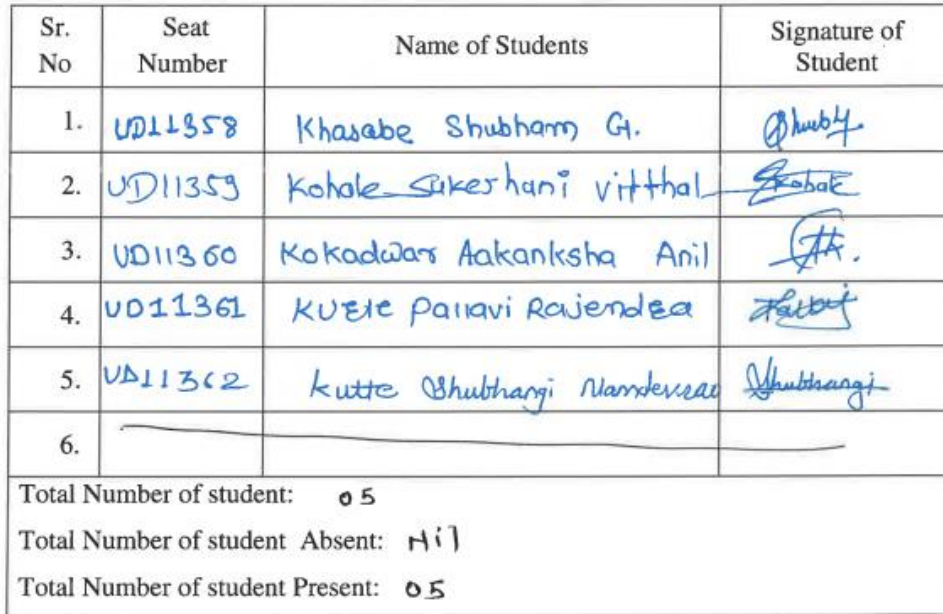 Sr. No Seat Number Name of Students Signature of Student
1. UD11358 Khasabe Shubham G.
2. UD11359 Kohale Sukeshani Vitthal Kohale
3. UD11360 Kokadwar Aakanksha Anil
4. UD11361 Pallavi Rajendra
5. UD11362 Kutte Shubhangi Namdevrao Shubhangi
6.
Total Number of student: 05
Total Number of student Absent: Nil
Total Number of student Present: 05